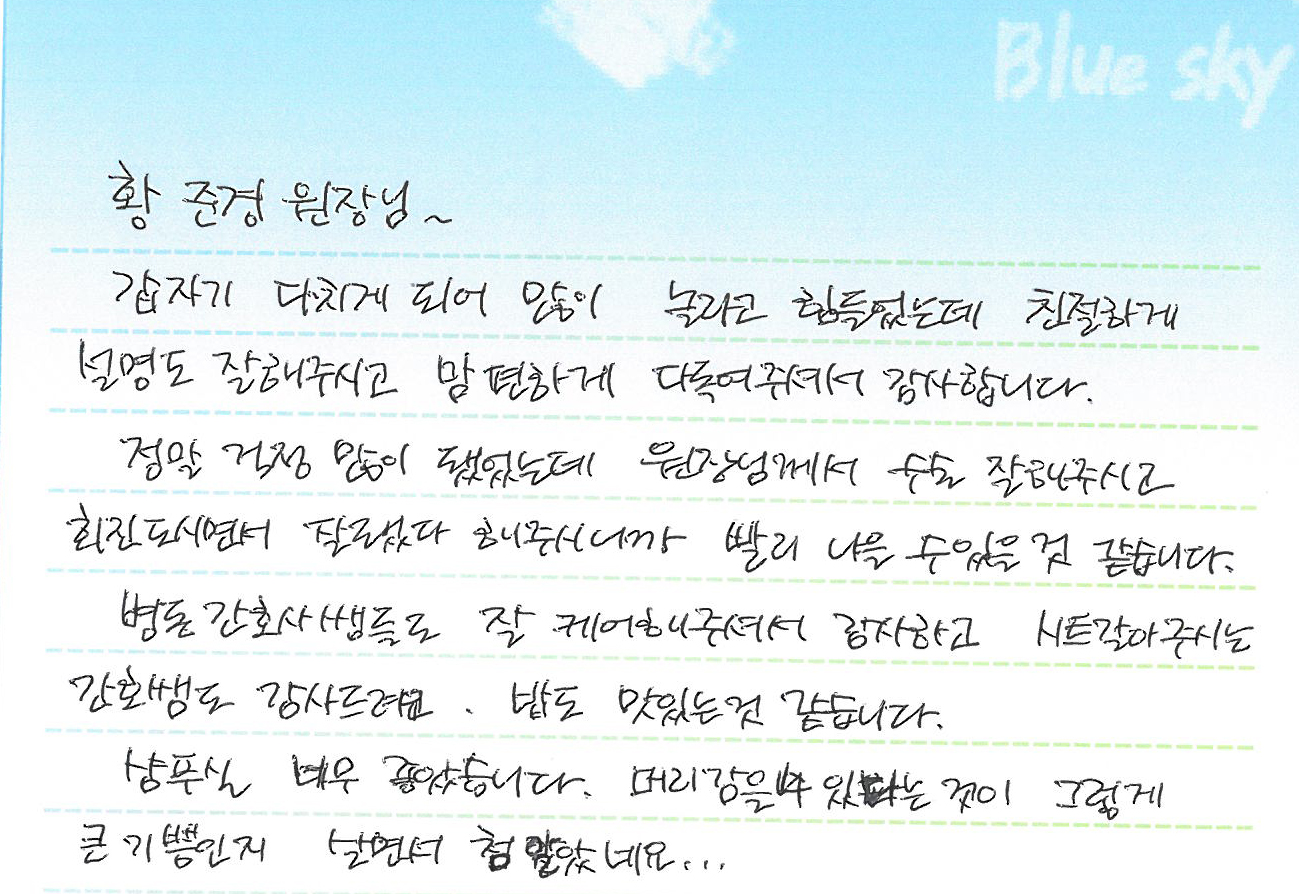 Blue sky
황 준경 원장님~
갑자기 다치게 되어 많이 놀라고 힘들었는데 친절하게
설명도 잘해주시고 맘 편하게 다독여주셔서 감사합니다.
정말 걱정 많이 됐었는데 원장님께서 수술 잘해주시고
회진도시면서 잘되었다 해주시니까 빨리 나을 수있을 것 같습니다.
병동 간호사쌤들도 잘 케어해주셔서 감사하고 시트갈아주시는
간호쌤도 감사드려요. 밥도 맛있는것 같습니다.
샴푸실 너무 좋았습니다. 머리감을수 있다는 것이 그렇게
큰 기쁨인지 살면서 첨 알았네요...